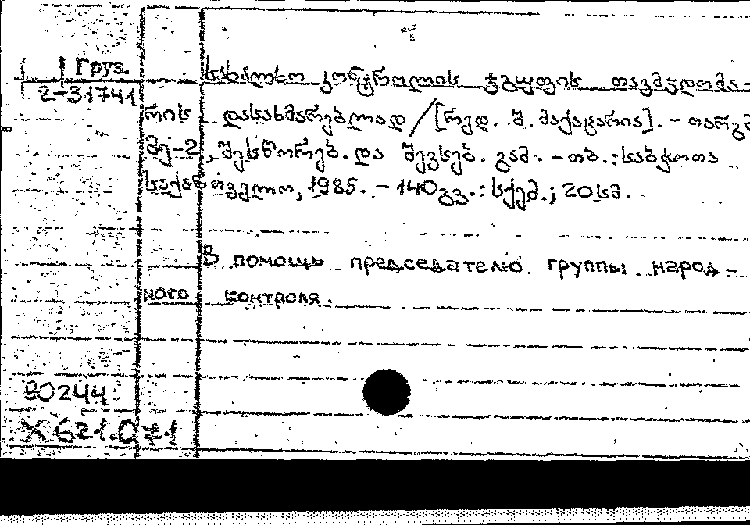 Груз.
2-31741
სახალხო კონტროლის ჯგუფის თავმჯდომა-
რის დასახმარებლად / [რედ. შ. მაქაცარია]. - თარგმ
მე-2, შესწორებ. და შევსებ. გამ. - თბ.: საბჭოთა
საქართველო, 1985. - 140გვ.: სქემ.; 20სმ.
В помощь председателю группы народ-
ного контроля.
80244
X621.071